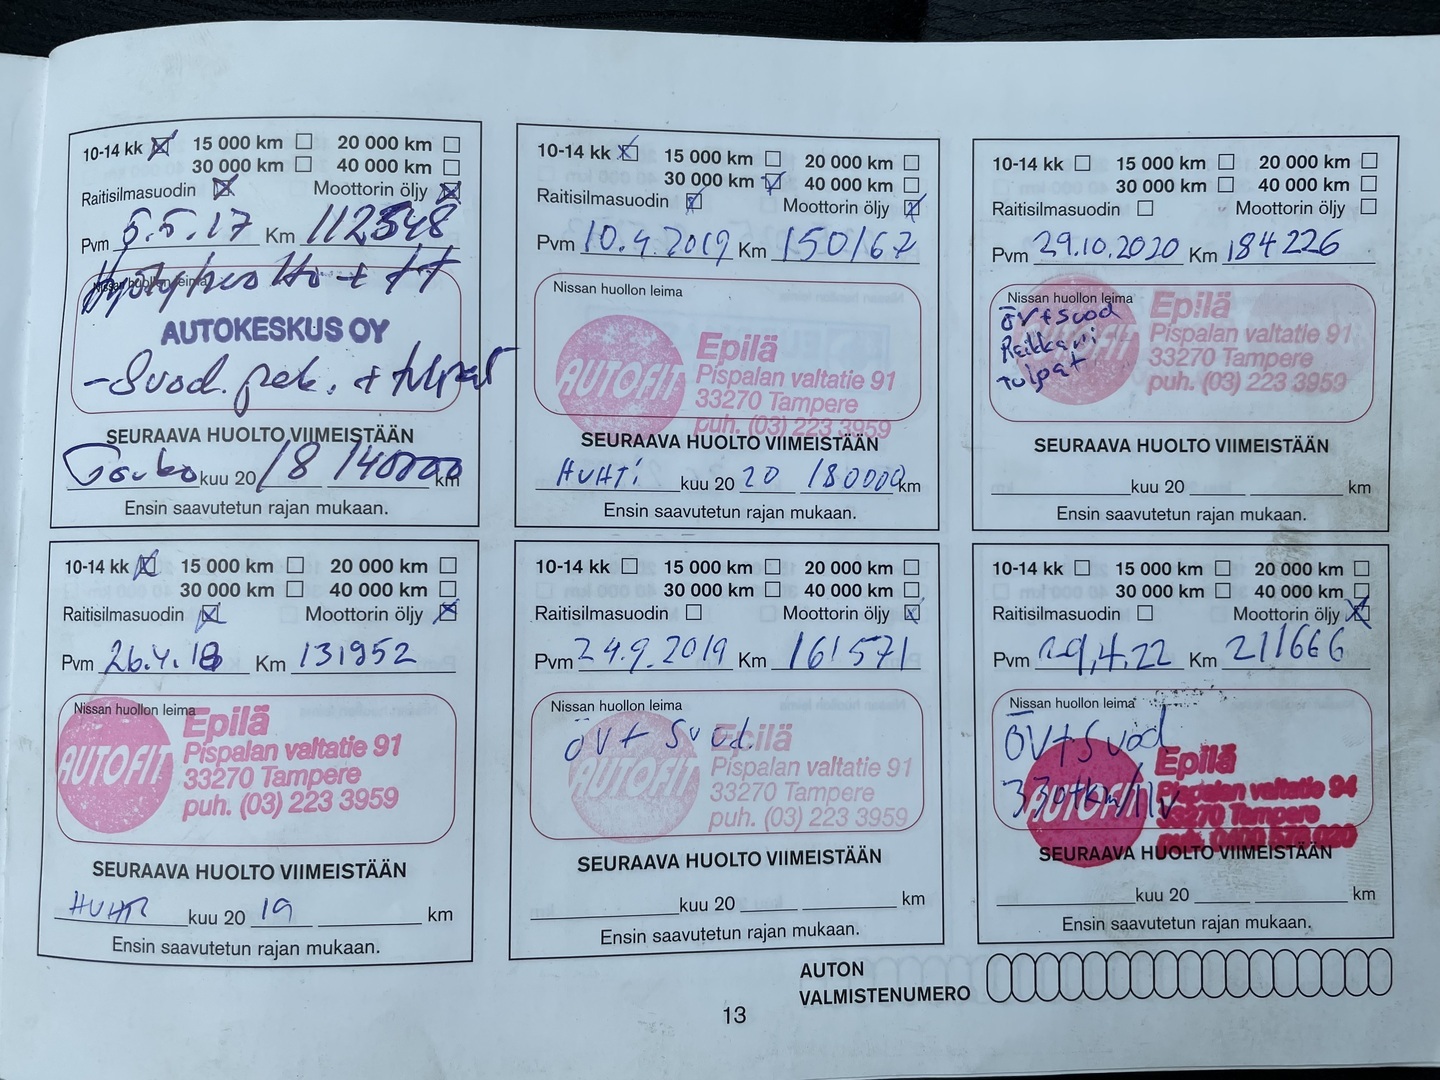 10-14 kk 15 000 km 20 000 km
30 000 km 40 000 km
Raitisilmasuodin Moottorin öljy
Pvm 5.5.17 Km 112548
Nissan huollon leima
AUTOKESKUS OY
-Suod. pak. + tulpat
SEURAAVA HUOLTO VIIMEISTÄÄN
Touko kuu 20/8 140000 km
Ensin saavutetun rajan mukaan.
10-14 kk 15 000 km 20 000 km
30 000 km 40 000 km
Raitisilmasuodin Moottorin öljy
Pvm 26.4.18 Km 131952
Nissan huollon leima
AUTOFIT
Epilä
Pispalan valtatie 91
33270 Tampere
puh. (03) 223 3959
SEURAAVA HUOLTO VIIMEISTÄÄN
HUHTI kuu 20 19 km
Ensin saavutetun rajan mukaan.
10-14 kk 15 000 km 20 000 km
30 000 km 40 000 km
Raitisilmasuodin Moottorin öljy
Pvm 10.4.2019 Km 150167
Nissan huollon leima
AUTOFIT
Epilä
Pispalan valtatie 91
33270 Tampere
puh. (03) 223 3959
SEURAAVA HUOLTO VIIMEISTÄÄN
HUHTI kuu 20 20 180000 km
Ensin saavutetun rajan mukaan.
10-14 kk 15 000 km 20 000 km
30 000 km 40 000 km
Raitisilmasuodin Moottorin öljy
Pvm 24.9.2019 Km 161571
Nissan huollon leima
ÖV+ Suod.
AUTOFIT
Epilä
Pispalan valtatie 91
33270 Tampere
puh. (03) 223 3959
SEURAAVA HUOLTO VIIMEISTÄÄN
kuu 20 km
Ensin saavutetun rajan mukaan.
10-14 kk 15 000 km 20 000 km
30 000 km 40 000 km
Raitisilmasuodin Moottorin öljy
Pvm 29.10.2020 Km 184226
Nissan huollon leima
ÖV+suod
Peikkari
Tulpat
AUTOFIT
Epilä
Pispalan valtatie 91
33270 Tampere
puh. (03) 223 3959
SEURAAVA HUOLTO VIIMEISTÄÄN
kuu 20 km
Ensin saavutetun rajan mukaan.
10-14 kk 15 000 km 20 000 km
30 000 km 40 000 km
Raitisilmasuodin Moottorin öljy
Pvm 29,4.22 Km 211666
Nissan huollon leima
ÖV+Suod
AUTOFIT
Epilä
Pispalan valtatie 94
33270 Tampere
SEURAAVA HUOLTO VIIMEISTÄÄN
kuu 20 km
Ensin saavutetun rajan mukaan.
AUTON
VALMISTENUMERO
13